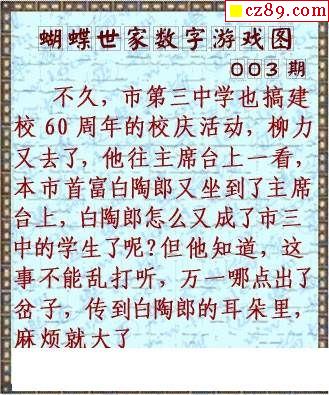 cz89.com
蝴蝶世家数字游戏图
003 期
不久，市第三中学也搞建
校 60 周年的校庆活动，柳力
又去了，他往主席台上一看，
本市首富白陶郎又坐到了主席
台上，白陶郎怎么又成了市三
中的学生了呢?但他知道，这
事不能乱打听，万一哪点出了
岔子，传到白陶郎的耳朵里，
麻烦就大了